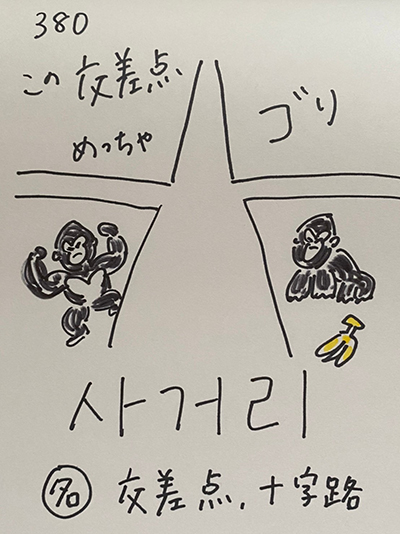 380
この交差点
めっちゃ
ゴリ
사거리
名 交差点、十字路